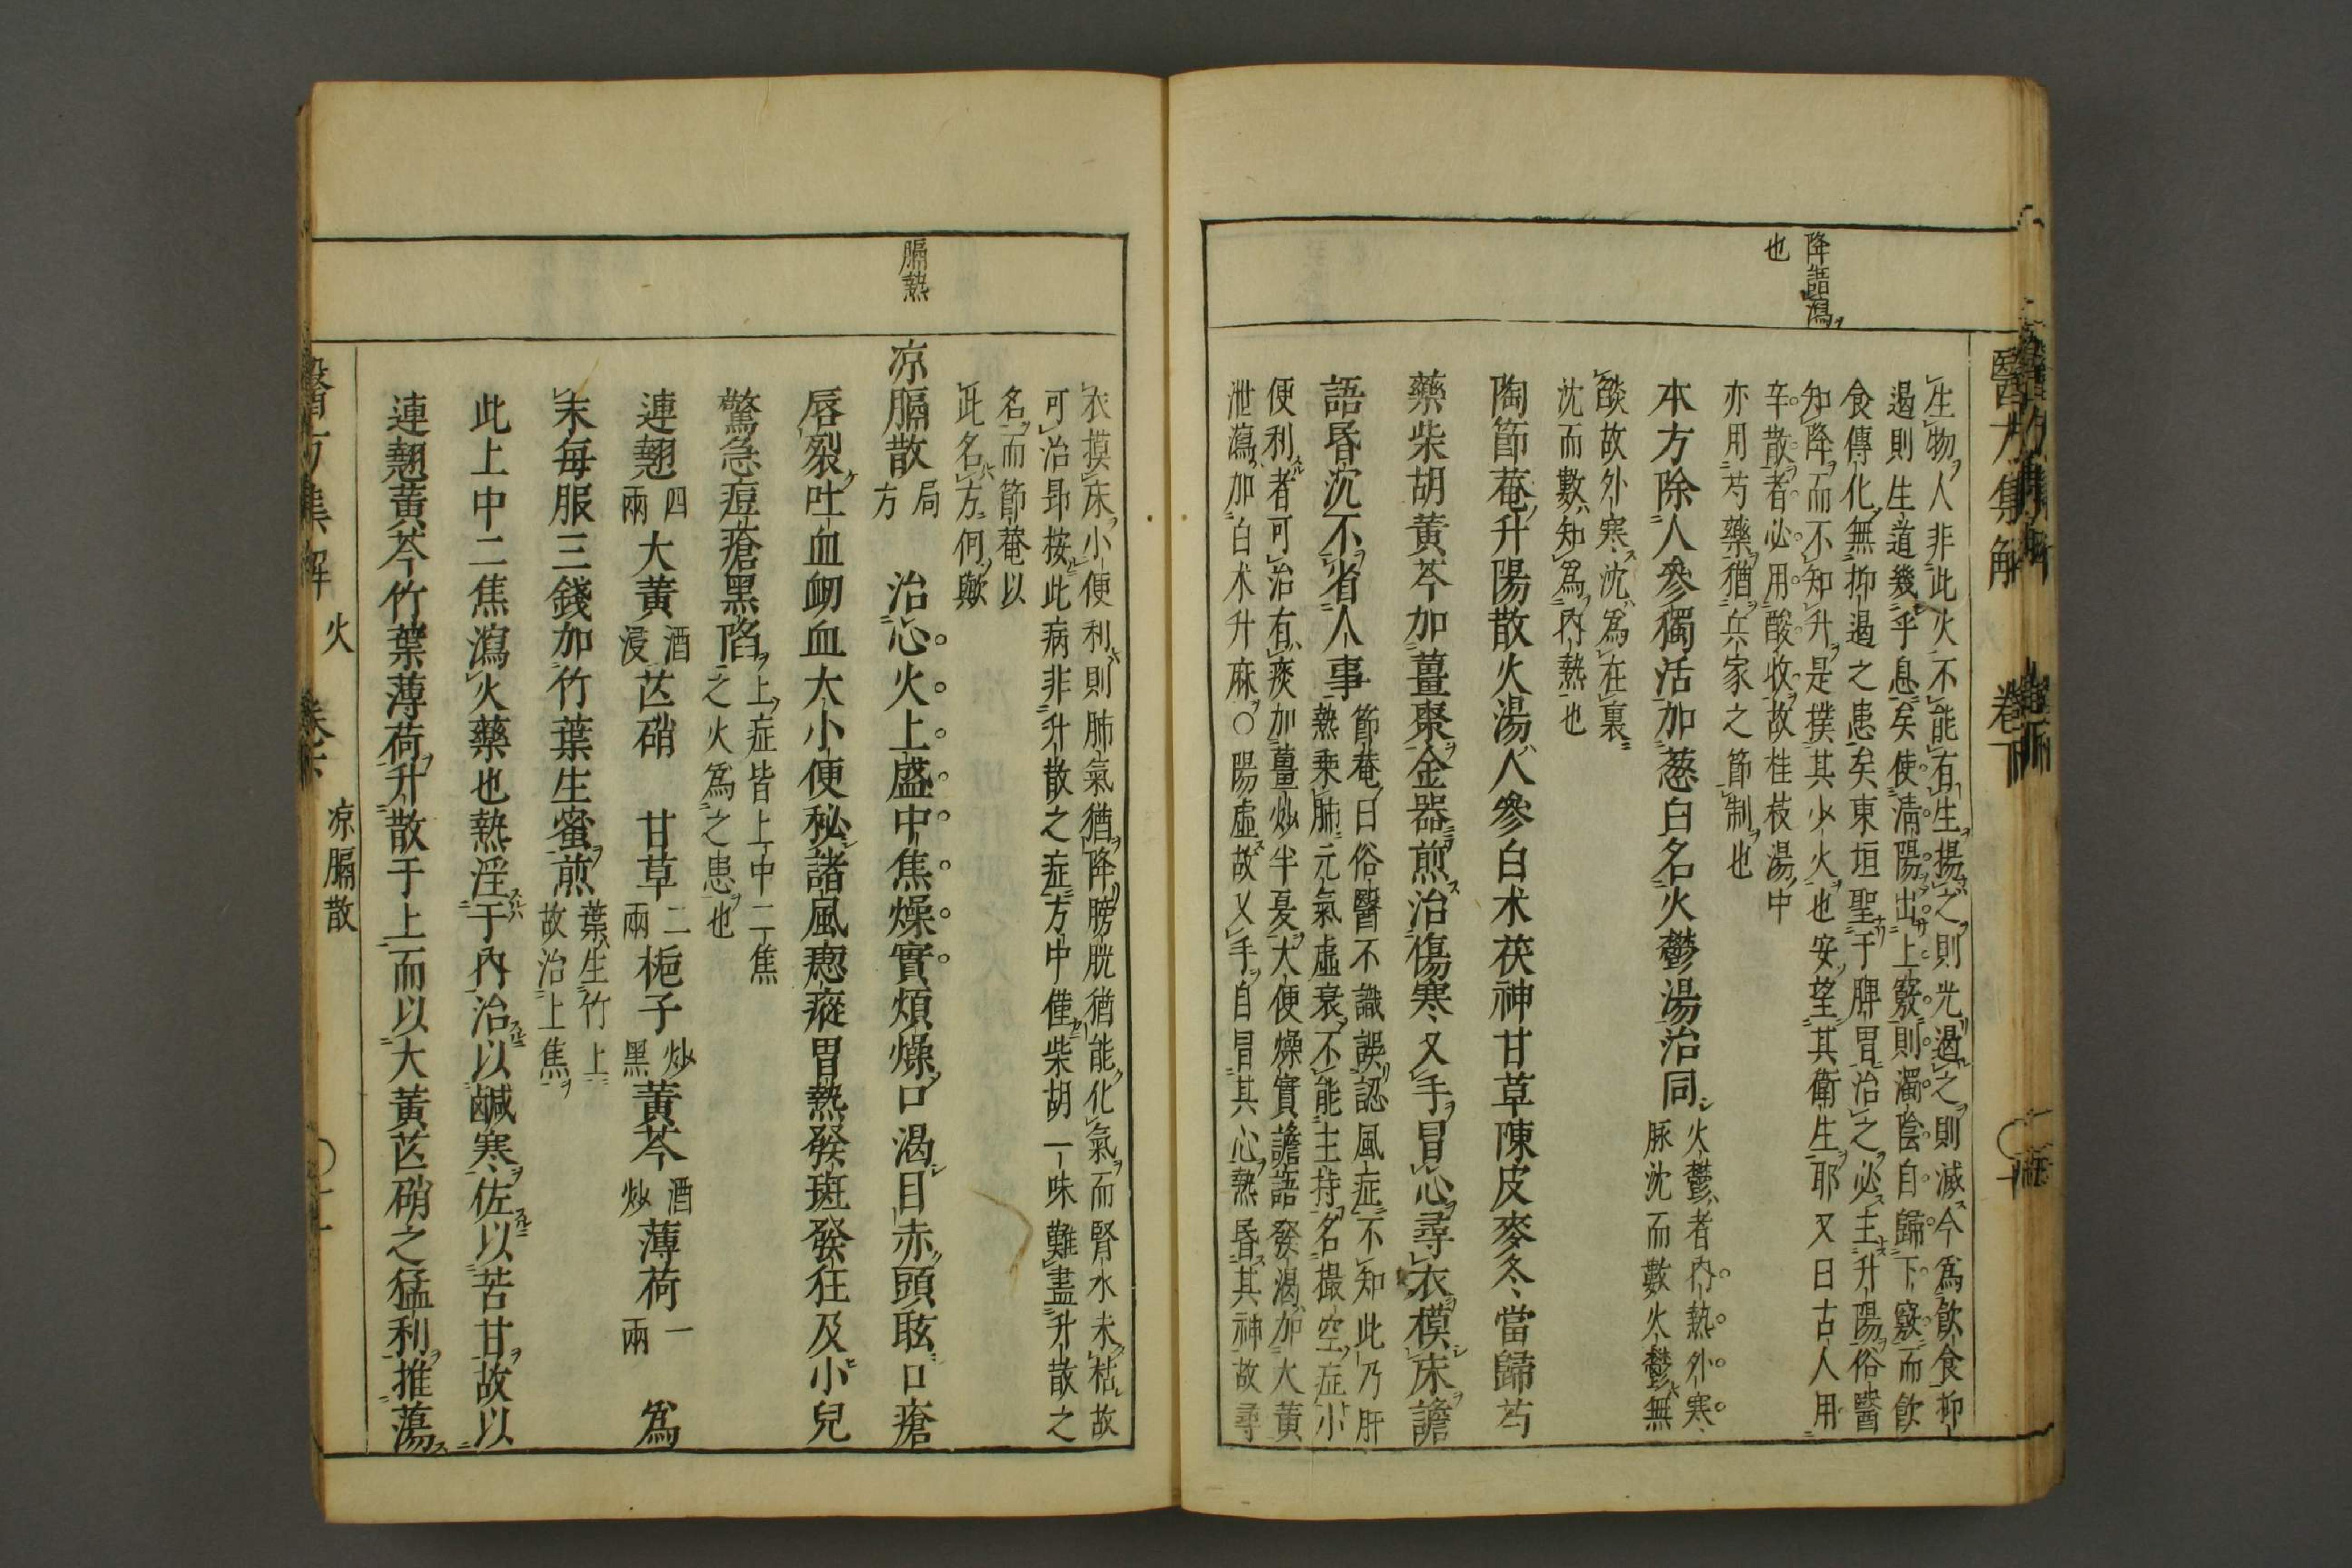 醫方集解 卷下
降語瀉
也
生物人非此火不能有生揚之則光遏之則滅今爲飲食抑
遏則生道幾乎息矣使清陽出上竅則濁陰自歸下竅而飲
食傳化無抑遏之患矣東垣聖于脾胃治之必主升陽俗醫
知降而不知升是撲其少火也安望其衛生耶又曰古人用
辛散者必用酸收故桂枝湯中
亦用芍藥猶兵家之節制也
本方除人參獨活加葱白名火鬱湯治同火鬱者內熱外寒
脉沈而數火鬱無
燄故外寒沈爲在裏
沈而數知爲內熱也
陶節菴升陽散火湯人參白术茯神甘草陳皮麥冬當歸芍
藥柴胡黃芩加薑棗金器煎治傷寒又手冒心尋衣模床譫
語昏沈不省人事節菴曰俗醫不識誤認風症不知此乃肝
熱乗肺元氣虛衰不能主持名撮空症小
便利者可治有痰加薑炒半夏大便燥實譫語發渴加大黃
泄瀉加白术升麻○陽虛故又手自冒其心熱昏其神故尋
衣摸床小便利則肺氣猶降膀胱猶能化氣而腎水未枯故
可治昻按此病非升散之症方中僅柴胡一味難盡升散之
名而節菴以
此名方何歟
膈熱
凉膈散局方 治心火上盛中焦燥實煩燥口渴目赤頭眩口瘡
唇裂吐血衂血大小便秘諸風瘛瘲胃熱發斑發狂及小兒
驚急痘瘡黑陷上症皆上中二焦
之火爲之患也
連翹四兩大黃酒浸芒硝 甘草二兩梔子炒黑黃芩酒炒薄荷一兩 爲
末每服三錢加竹葉生蜜煎葉生竹上
故治上焦
此上中二焦瀉火藥也熱淫于內治以鹹寒佐以苦甘故以
連翹黃芩竹葉薄荷升散于上而以大黃芒硝之猛利推蕩
醫方集解 火 凉膈散